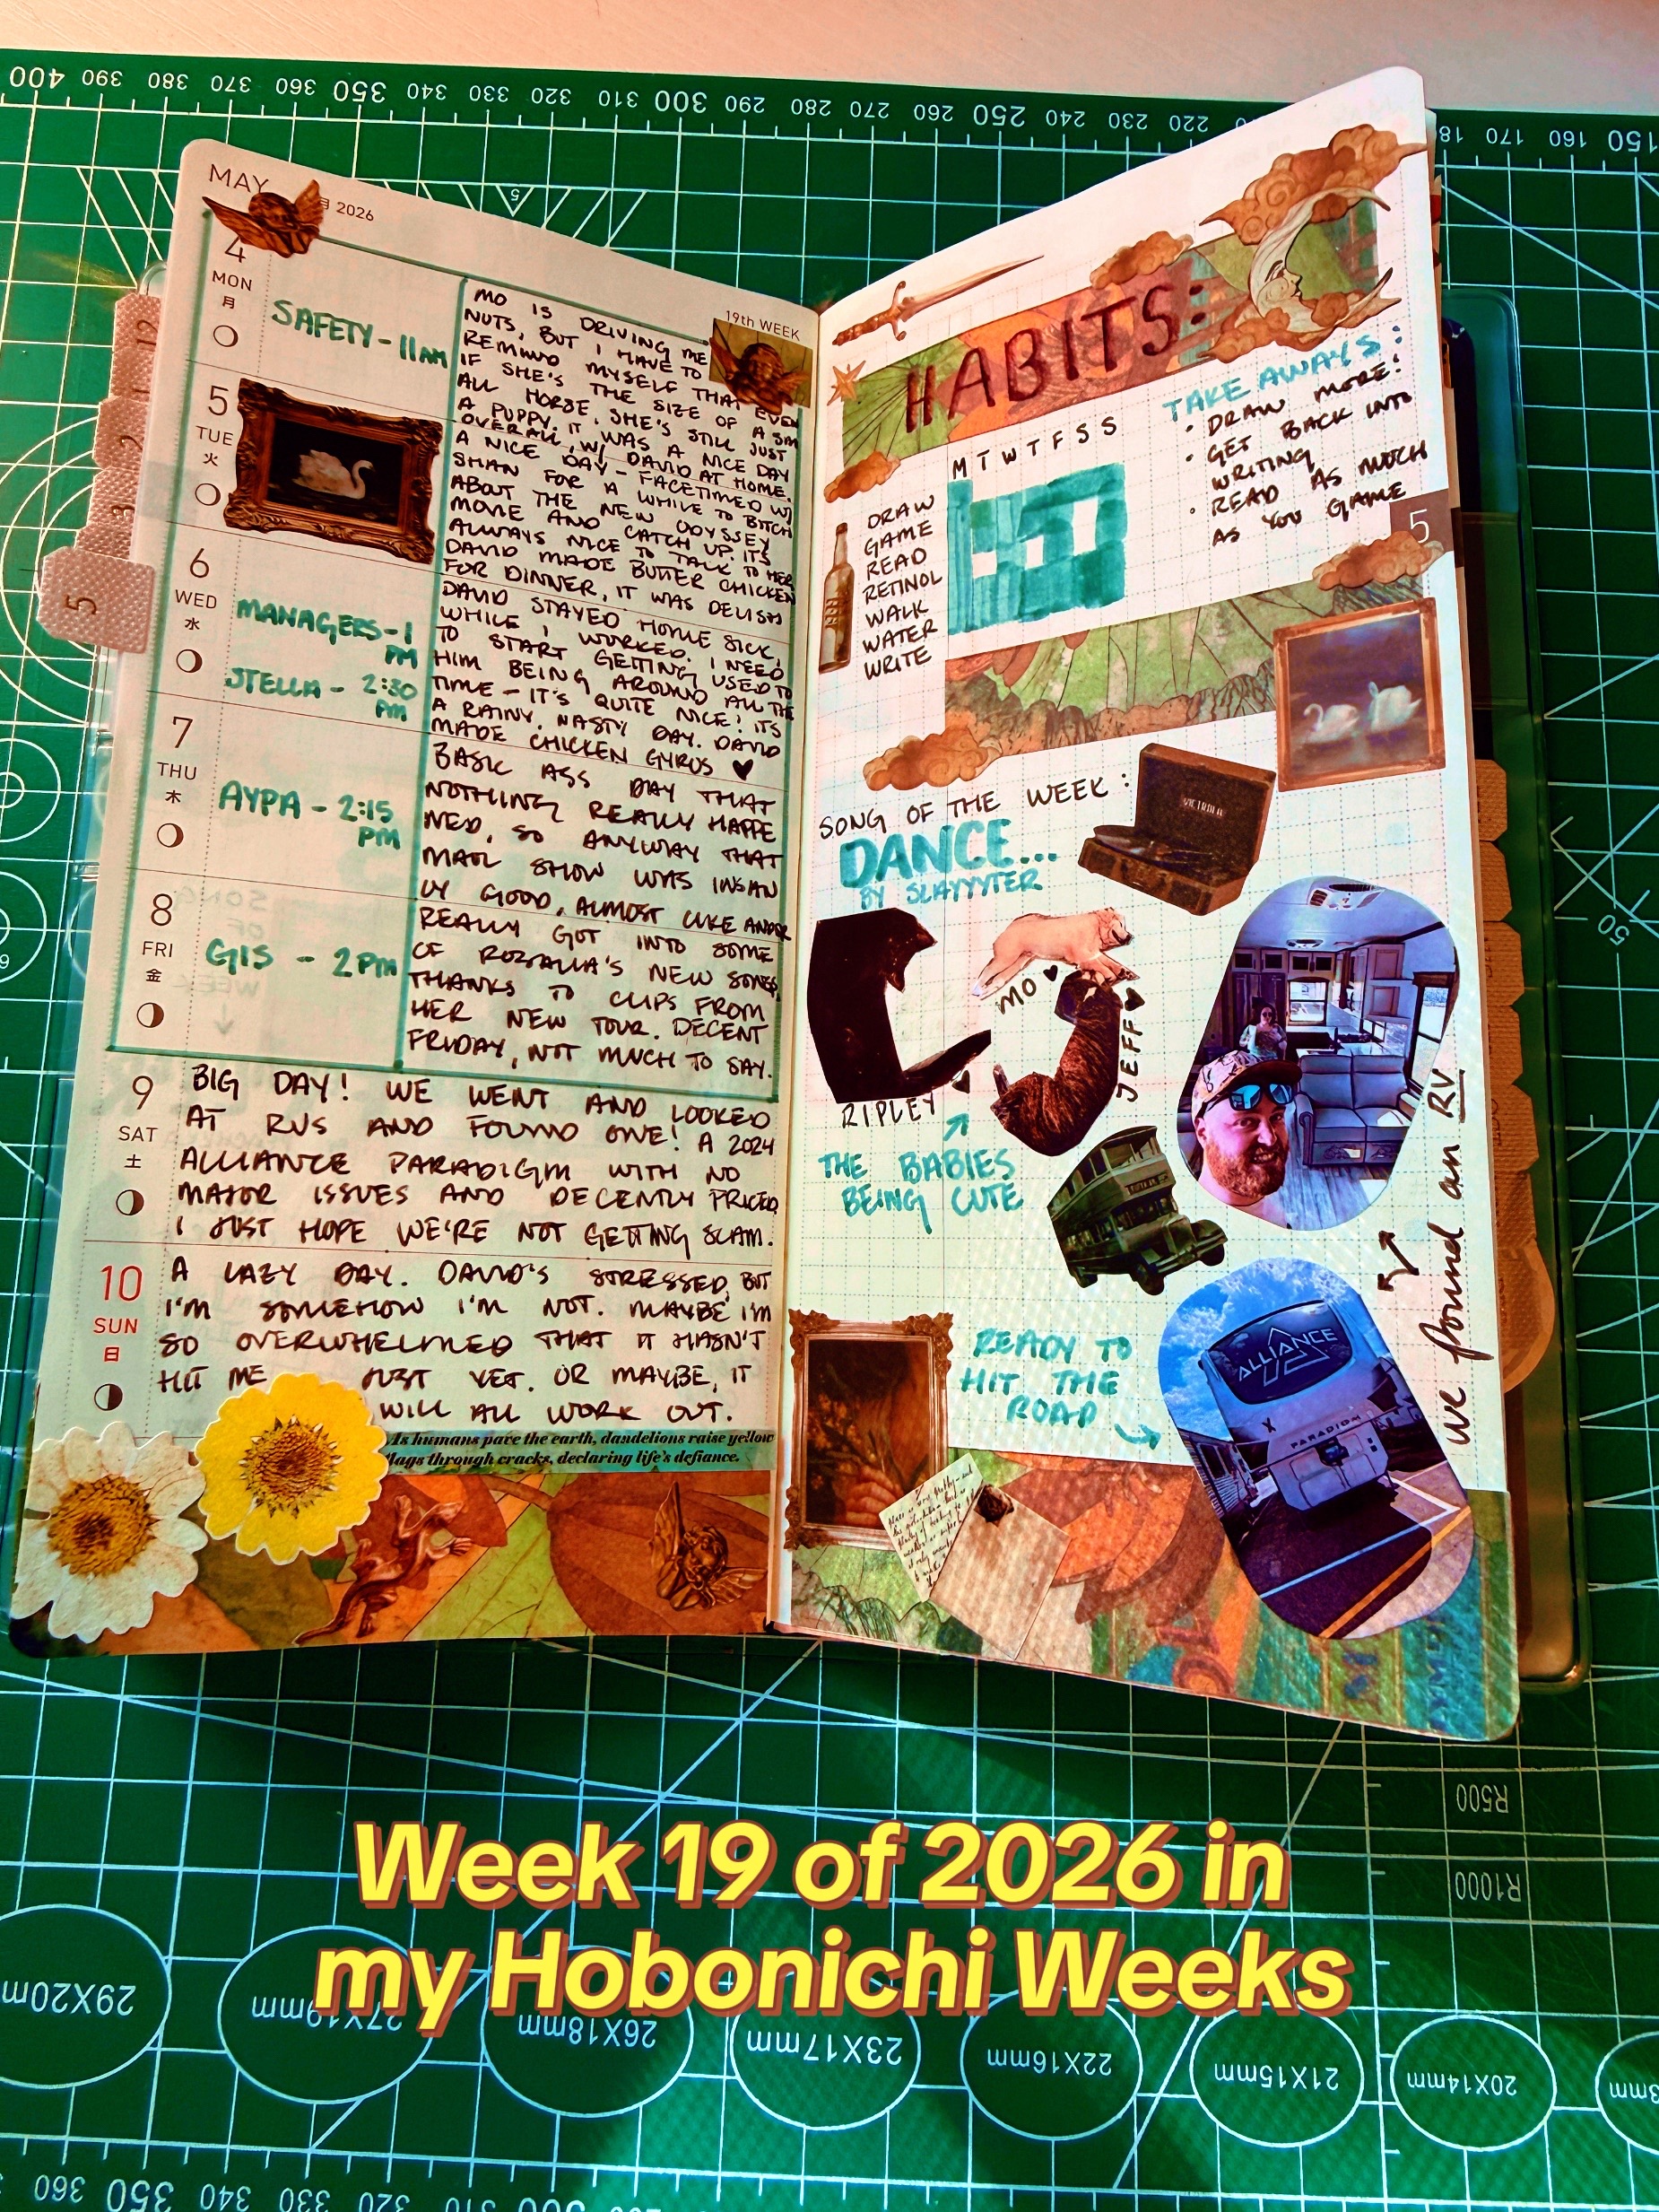 MAY
2026
19th WEEK
4
MON
月
SAFETY - 11AM
MO IS DRIVING ME
NUTS, BUT I HAVE TO
REMIND MYSELF THAT EVEN
IF SHE'S THE SIZE OF A SM
ALL HORSE, SHE'S STILL JUST
A PUPPY. IT WAS A NICE DAY
OVERALL, W/ DAVID AT HOME.
5
TUE
火
A NICE DAY - FACETIMED W/
SHAN FOR A WHILE TO BITCH
ABOUT THE NEW ODYSSEY
MOVIE AND CATCH UP. ITS
ALWAYS NICE TO TALK TO HER
DAVID MADE BUTTER CHICKEN
FOR DINNER, IT WAS DELISH
6
WED
水
MANAGERS - 1
PM
STELLA - 2:30
PM
DAVID STAYED HOME SICK,
WHILE I WORKED. I NEED
TO START GETTING USED TO
HIM BEING AROUND ALL THE
TIME - IT'S QUITE NICE! ITS
A RAINY, NASTY DAY. DAVID
MADE CHICKEN GYROS ♥
7
THU
木
AYPA - 2:15
PM
BASIC ASS DAY THAT
NOTHING REALLY HAPPE
NED, SO ANYWAY THAT
MAUL SHOW WAS INSAN
LY GOOD, ALMOST LIKE ANDOR
8
FRI
金
GIS - 2PM
REALLY GOT INTO SOME
OF ROSALIA'S NEW SONGS
THANKS TO CLIPS FROM
HER NEW TOUR. DECENT
FRIDAY, NOT MUCH TO SAY.
9
SAT
土
BIG DAY! WE WENT AND LOOKED
AT RVS AND FOUND ONE! A 2024
ALLIANCE PARADIGM WITH NO
MAJOR ISSUES AND DECENTLY PRICED
I JUST HOPE WE'RE NOT GETTING SCAM.
10
SUN
日
A LAZY DAY. DAVID'S STRESSED, BUT
I'M SOMEHOW I'M NOT. MAYBE I'M
SO OVERWHELMED THAT IT HASN'T
HIT ME JUST YET. OR MAYBE, IT
WILL ALL WORK OUT.
As humans pave the earth, dandelions raise yellow
flags through cracks, declaring life's defiance.
HABITS:
M T W T F S S
DRAW
GAME
READ
RETINOL
WALK
WATER
WRITE
TAKE AWAYS:
• DRAW MORE!
• GET BACK INTO
WRITING
• READ AS MUCH
AS YOU GAME
5
SONG OF THE WEEK:
DANCE...
BY SLAYYYTER
VICTROLA
MO ♥
JEFF ♥
RIPLEY ♥
THE BABIES
BEING CUTE
we found an RV
READY TO
HIT THE
ROAD
ALLIANCE
PARADIGM
12
2
3
5
400 390 380 370 360 350 340 330 320 310 300 290 280 270 260 250 240 230 220 170 160 150
5
50
R500
R1000
29X20mm
27X19mm
26X18mm
23X17mm
22X16mm
21X15mm
20X14mm
360 350 340 330 320 310
Week 19 of 2026 in
my Hobonichi Weeks